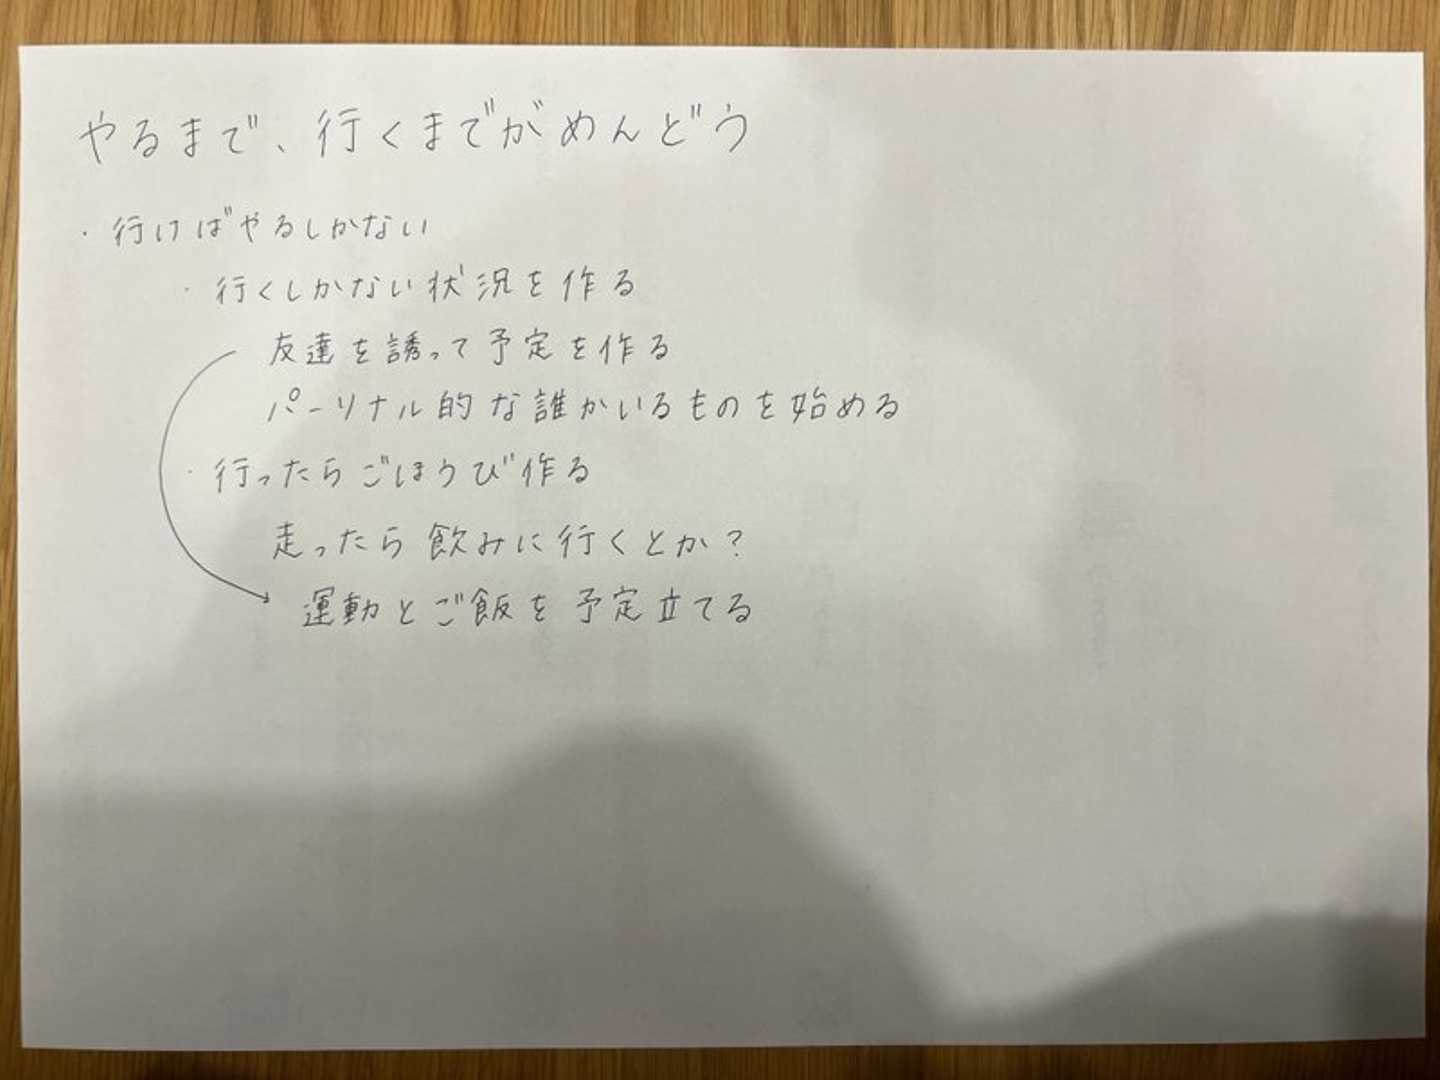 やるまで、行くまでがめんどう
・行けばやるしかない
・行くしかない状況を作る
友達を誘って予定を作る
パーソナル的な誰かいるものを始める
・行ったらごほうび作る
走ったら飲みに行くとか?
運動とご飯を予定立てる